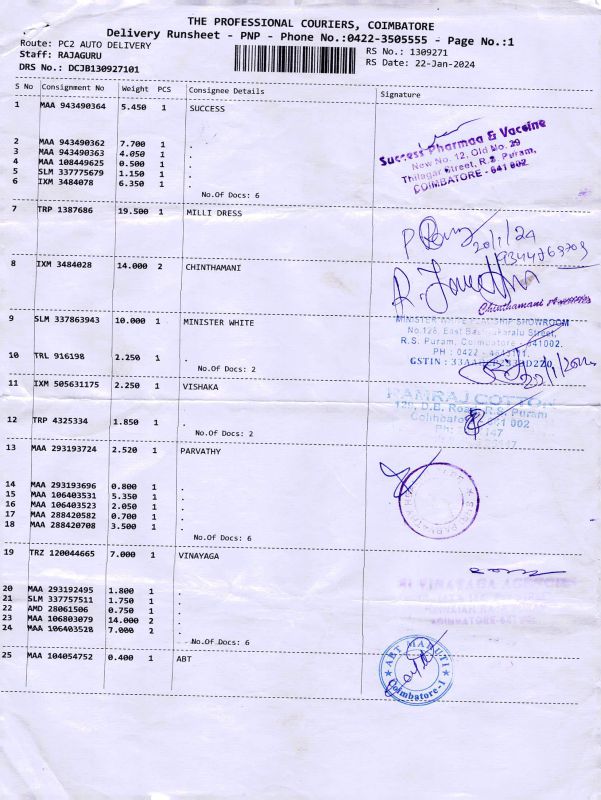 THE PROFESSIONAL COURIERS, COIMBATORE
Delivery Runsheet - PNP - Phone No.:0422-3505555 - Page No.:1
Route: PC2 AUTO DELIVERY
RS No.: 1309271
Staff: RAJAGURU
RS Date: 22-Jan-2024
DRS No.: DCJB130927101
S No Consignment No Weight PCS Consignee Details Signature
1 MAA 943490364 5.450 1 SUCCESS
2 MAA 943490362 7.700 1 .
3 MAA 943490363 4.050 1 .
4 MAA 108449625 0.500 1 .
5 SLM 337775679 1.150 1 .
6 IXM 3484078 6.350 1 .
No.Of Docs: 6
Success Pharmaa & Vaccine
New No. 12, Old No. 29
Thilagar Street, R.S. Puram,
COIMBATORE - 641 002.
7 TRP 1387686 19.500 1 MILLI DRESS
20/1/24
8 IXM 3484028 14.000 2 CHINTHAMANI
Chinthamani
9 SLM 337863943 10.000 1 MINISTER WHITE
SHOWROOM
No.128, East
R.S. Puram, Coimbatore - 641002.
PH : 0422
GSTIN :
10 TRL 916198 2.250 1 .
No.Of Docs: 2
11 IXM 505631175 2.250 1 VISHAKA
RAMRAJ COTTON
129, D.B. Road, R.S. Puram
Coimbatore 641 002
12 TRP 4325334 1.850 1 .
No.Of Docs: 2
13 MAA 293193724 2.520 1 PARVATHY
14 MAA 293193696 0.800 1 .
15 MAA 106403531 5.350 1 .
16 MAA 106403523 2.050 1 .
17 MAA 288420582 0.700 1 .
18 MAA 288420708 3.500 1 .
No.Of Docs: 6
19 TRZ 120044665 7.000 1 VINAYAGA
VINAYAGA AGENCIES
20 MAA 293192495 1.800 1 .
21 SLM 337757511 1.750 1 .
22 AMD 28061506 0.750 1 .
23 MAA 106803079 14.000 2 .
24 MAA 106403528 7.000 2 .
No.Of Docs: 6
25 MAA 104054752 0.400 1 ABT
ABT MARUTI
Coimbatore-1